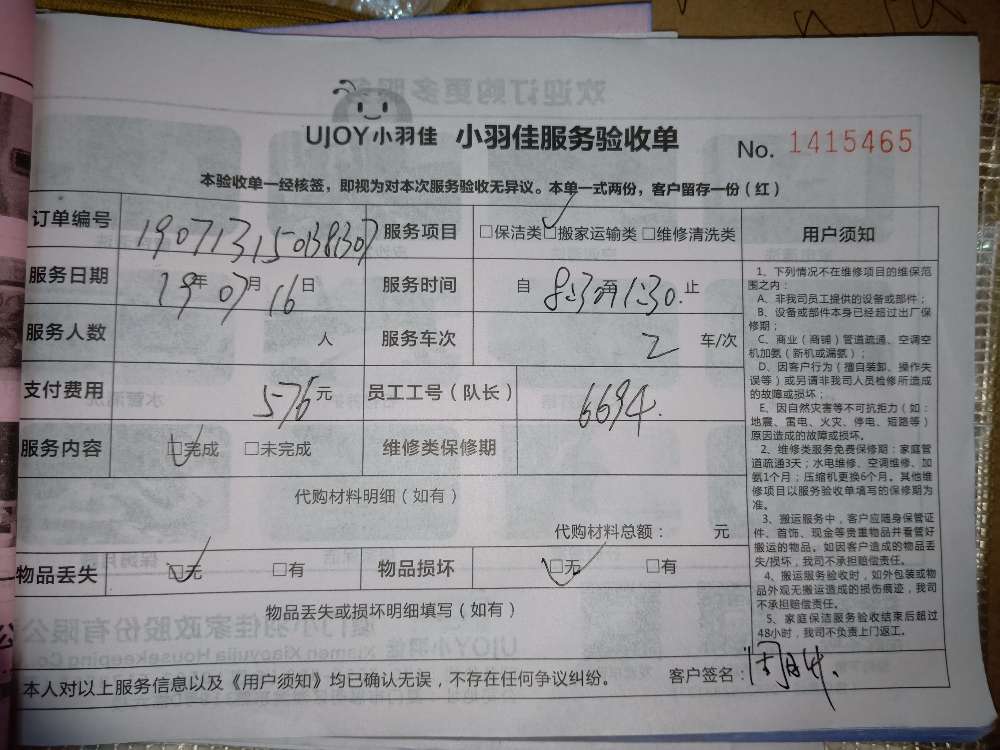 UJOY小羽佳 小羽佳服务验收单 No. 1415465
本验收单一经核签，即视为对本次服务验收无异议。本单一式两份，客户留存一份（红）
订单编号 服务项目 □保洁类 ☑搬家运输类 □维修清洗类
服务日期 19年07月16日 服务时间 自 8:30至1:30.止
服务人数 人 服务车次 2 车/次
支付费用 576元 员工工号（队长） 6694.
服务内容 ☑完成 □未完成 维修类保修期
代购材料明细（如有）
代购材料总额： 元
物品丢失 ☑无 □有 物品损坏 ☑无 □有
物品丢失或损坏明细填写（如有）
本人对以上服务信息以及《用户须知》均已确认无误，不存在任何争议纠纷。 客户签名：
用户须知
1、下列情况不在维修项目的维保范
围之内：
A、非我司员工提供的设备或部件；
B、设备或部件本身已经超过出厂保
修期；
C、商业（商铺）管道疏通、空调空
机加氨（新机或漏氨）；
D、因客户行为（擅自装卸、操作失
误等）或另请非我司人员检修所造成
的故障或损坏；
E、因自然灾害等不可抗拒力（如：
地震、雷电、火灾、停电、短路等）
原因造成的故障或损坏。
2、维修类服务免费保修期：家庭管
道疏通3天；水电维修、空调维修、加
氨1个月；压缩机更换6个月。其他维
修项目以服务验收单填写的保修期为
准。
3、搬运服务中，客户应随身保管证
件、首饰、现金等贵重物品并看管好
搬运的物品。如因客户造成的物品丢
失/损坏，我司不承担赔偿责任。
4、搬运服务验收时，如外包装或物
品外观无搬运造成的损伤痕迹，我司
不承担赔偿责任。
5、家庭保洁服务验收结束后超过
48小时，我司不负责上门返工。